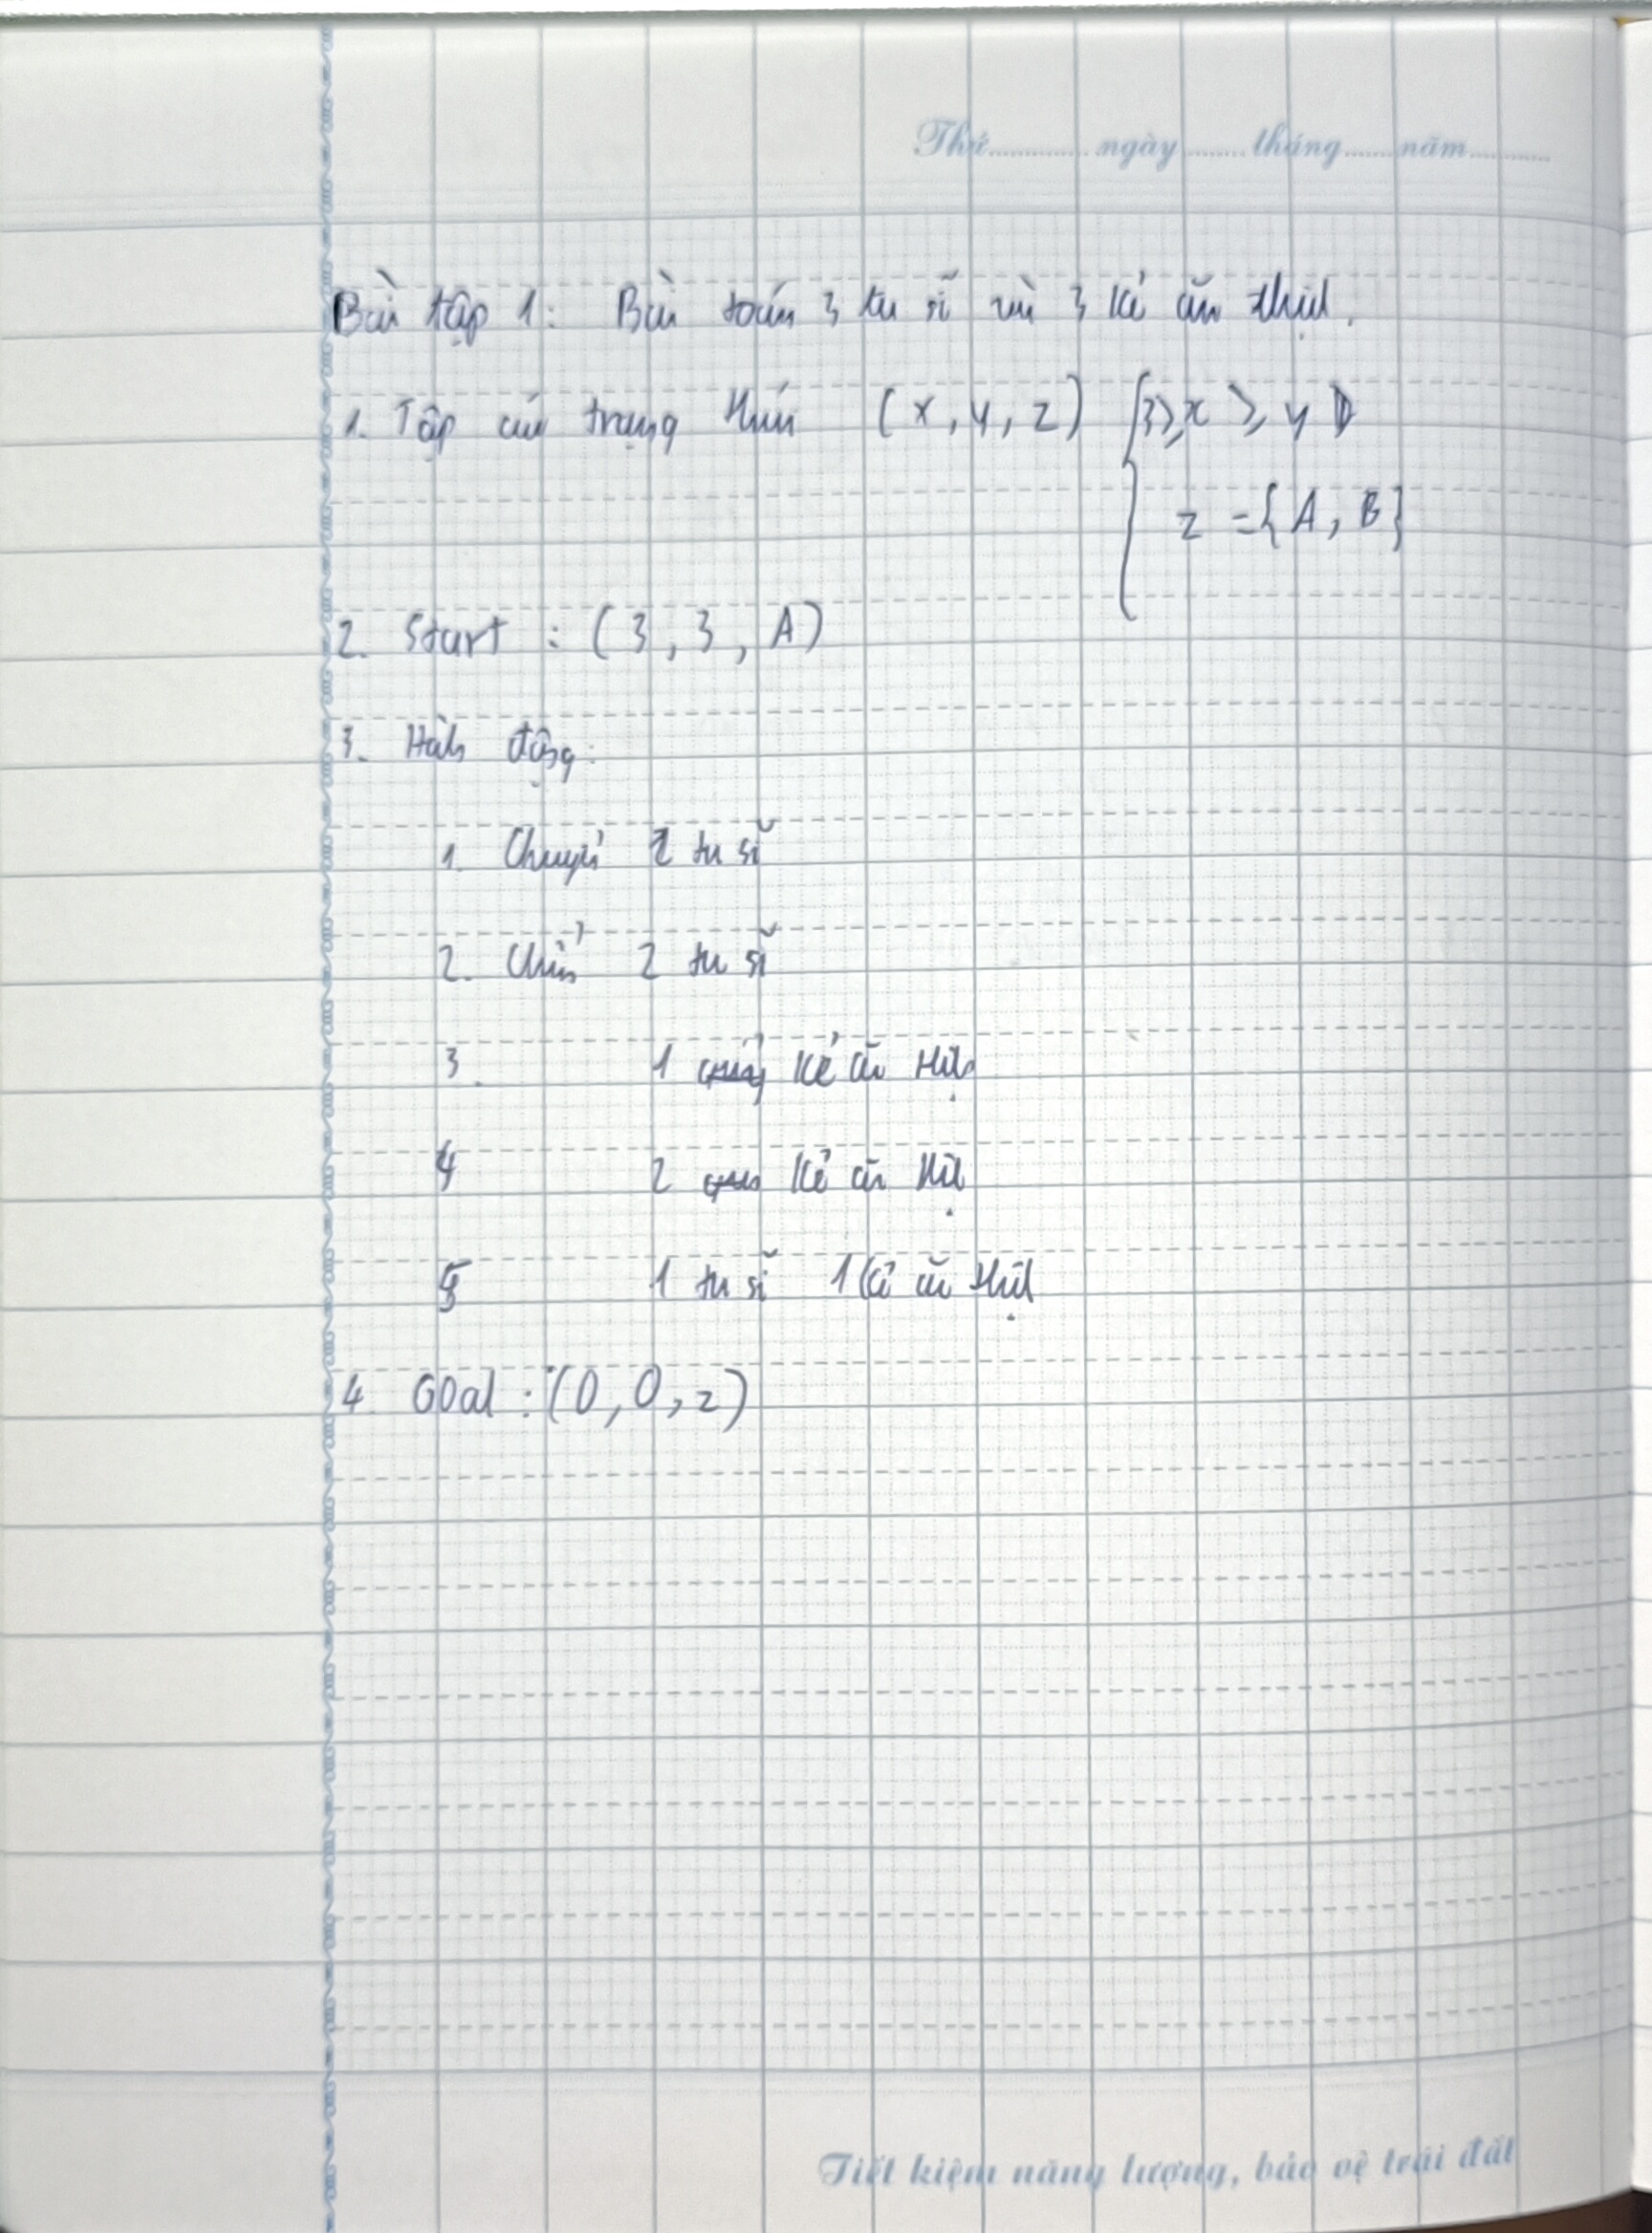 Thứ............ ngày........ tháng......năm............
Bài tập 1: Bài toán 3 tu sĩ và 3 kẻ ăn thịt.
1. Tập các trạng thái (x, y, z) { 3 ≥ x ≥ y
z = {A, B}
2. Start : (3, 3, A)
3. Hành động:
1. Chuyển 1 tu sĩ
2. Chuyển 2 tu sĩ
3. 1 kẻ ăn thịt
4 2 kẻ ăn thịt
5 1 tu sĩ 1 kẻ ăn thịt
4. Goal : (0, 0, z)
Tiết kiệm năng lượng, bảo vệ trái đất